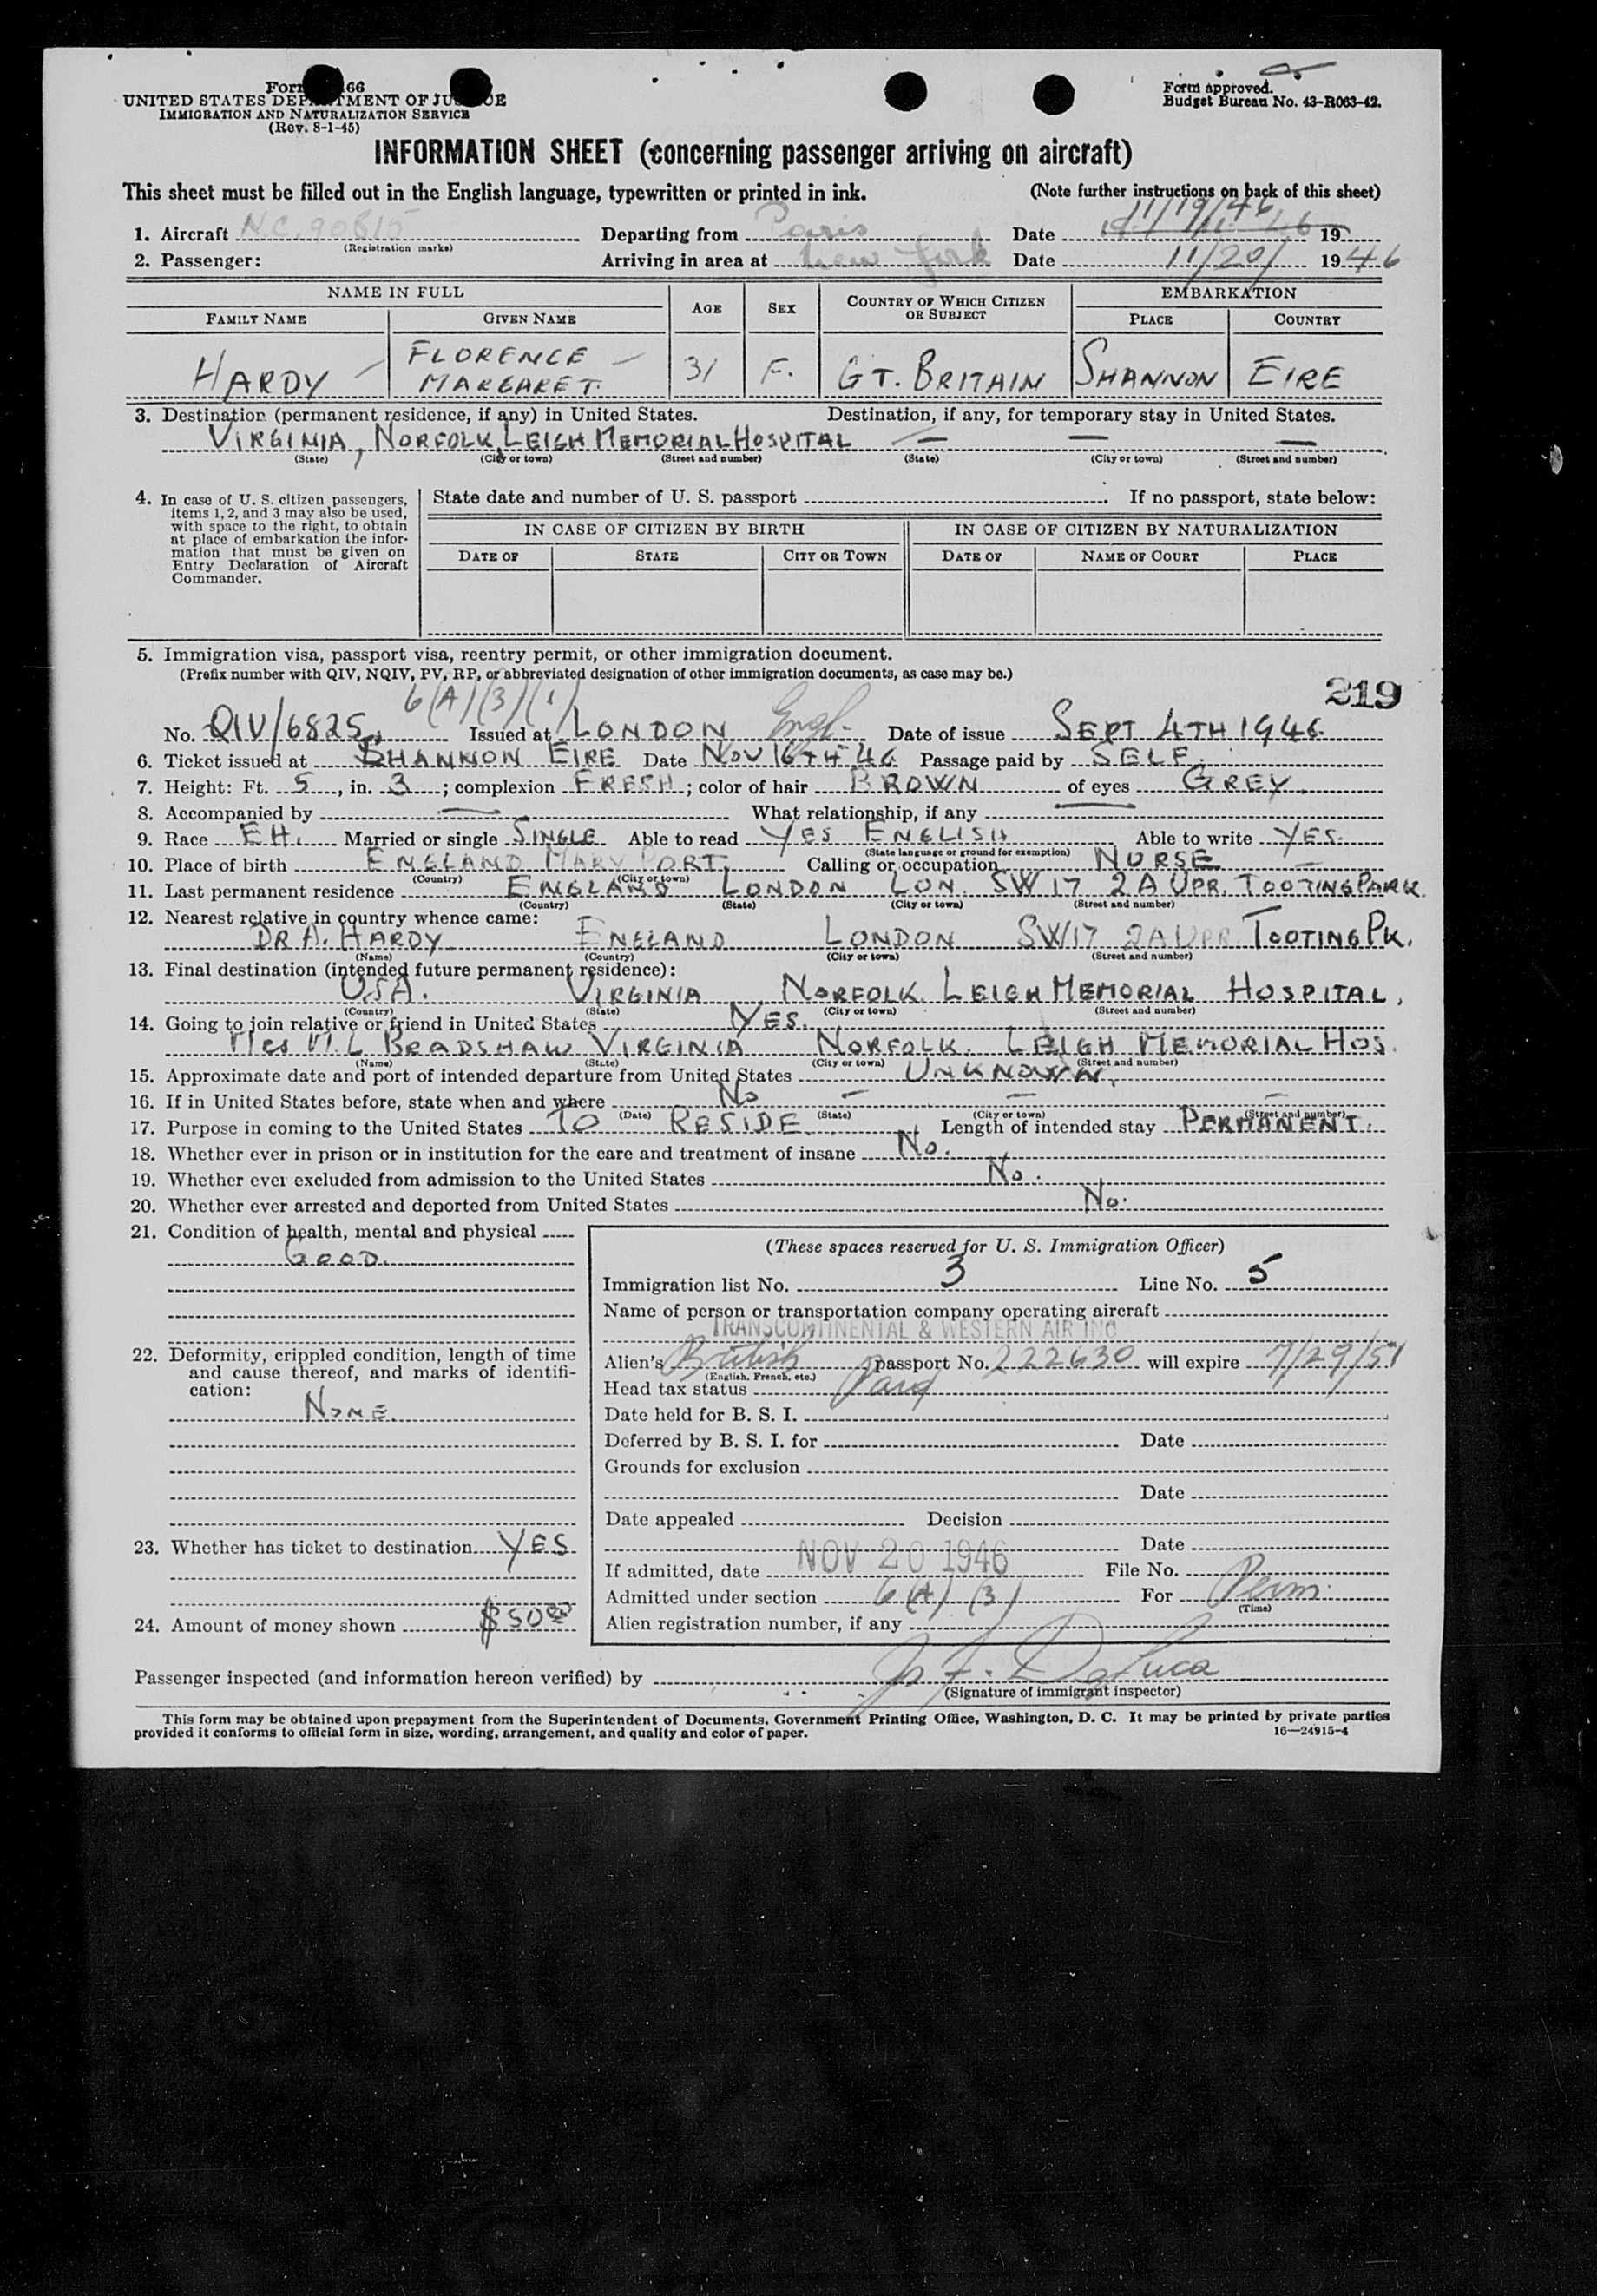 Form 66
UNITED STATES DEPARTMENT OF JUSTICE
IMMIGRATION AND NATURALIZATION SERVICE
(Rev. 8-1-45)
Form approved.
Budget Bureau No. 43-R063-42.
INFORMATION SHEET (concerning passenger arriving on aircraft)
This sheet must be filled out in the English language, typewritten or printed in ink. (Note further instructions on back of this sheet)
11/19/46
1. Aircraft N.C. 90815 Departing from Paris Date 19
(Registration marks)
2. Passenger: Arriving in area at New York Date 11/20/ 1946
NAME IN FULL AGE SEX COUNTRY OF WHICH CITIZEN OR SUBJECT EMBARKATION
FAMILY NAME GIVEN NAME PLACE COUNTRY
HARDY FLORENCE MARGARET. 31 F. GT. BRITAIN SHANNON EIRE
3. Destination (permanent residence, if any) in United States. Destination, if any, for temporary stay in United States.
VIRGINIA, NORFOLK, LEIGH MEMORIAL HOSPITAL — — —
(State) (City or town) (Street and number) (State) (City or town) (Street and number)
4. In case of U. S. citizen passengers, items 1, 2, and 3 may also be used, with space to the right, to obtain at place of embarkation the information that must be given on Entry Declaration of Aircraft Commander.
State date and number of U. S. passport . If no passport, state below:
IN CASE OF CITIZEN BY BIRTH IN CASE OF CITIZEN BY NATURALIZATION
DATE OF STATE CITY OR TOWN DATE OF NAME OF COURT PLACE
5. Immigration visa, passport visa, reentry permit, or other immigration document.
(Prefix number with QIV, NQIV, PV, RP, or abbreviated designation of other immigration documents, as case may be.)
219
6(A)(3)(1)
No. QIV/6825 Issued at LONDON Engl. Date of issue SEPT 4TH 1946
6. Ticket issued at SHANNON EIRE Date NOV 16TH 46 Passage paid by SELF.
7. Height: Ft. 5, in. 3; complexion FRESH; color of hair BROWN of eyes GREY.
8. Accompanied by — What relationship, if any —
9. Race EH. Married or single SINGLE Able to read YES ENGLISH Able to write YES.
(State language or ground for exemption)
10. Place of birth ENGLAND MARYPORT Calling or occupation NURSE
(Country) (City or town)
11. Last permanent residence ENGLAND LONDON LON. SW 17 2A UPR. TOOTING PARK
(Country) (State) (City or town) (Street and number)
12. Nearest relative in country whence came:
DR A. HARDY ENGLAND LONDON SW17 2A UPR. TOOTING PK.
(Name) (Country) (City or town) (Street and number)
13. Final destination (intended future permanent residence):
USA. VIRGINIA NORFOLK. LEIGH MEMORIAL HOSPITAL,
(Country) (State) (City or town) (Street and number)
14. Going to join relative or friend in United States YES.
Mrs M. L BRADSHAW VIRGINIA NORFOLK. LEIGH MEMORIAL HOS.
(Name) (State) (City or town) (Street and number)
15. Approximate date and port of intended departure from United States UNKNOWN.
16. If in United States before, state when and where No — — —
(Date) (State) (City or town) (Street and number)
17. Purpose in coming to the United States TO RESIDE Length of intended stay PERMANENT.
18. Whether ever in prison or in institution for the care and treatment of insane No.
19. Whether ever excluded from admission to the United States No.
20. Whether ever arrested and deported from United States No.
21. Condition of health, mental and physical
GOOD.
22. Deformity, crippled condition, length of time and cause thereof, and marks of identification:
NONE.
23. Whether has ticket to destination YES
24. Amount of money shown $5000
(These spaces reserved for U. S. Immigration Officer)
Immigration list No. 3 Line No. 5
Name of person or transportation company operating aircraft
TRANSCONTINENTAL & WESTERN AIR INC
Alien's British passport No. 222630 will expire 7/29/51
(English, French, etc.)
Head tax status Paid
Date held for B. S. I.
Deferred by B. S. I. for Date
Grounds for exclusion
Date
Date appealed Decision
Date
If admitted, date NOV 20 1946 File No.
Admitted under section 6(A)(3) For Perm.
(Time)
Alien registration number, if any
Passenger inspected (and information hereon verified) by J. F. DeLuca
(Signature of immigrant inspector)
This form may be obtained upon prepayment from the Superintendent of Documents, Government Printing Office, Washington, D. C. It may be printed by private parties
provided it conforms to official form in size, wording, arrangement, and quality and color of paper. 16—24915-4